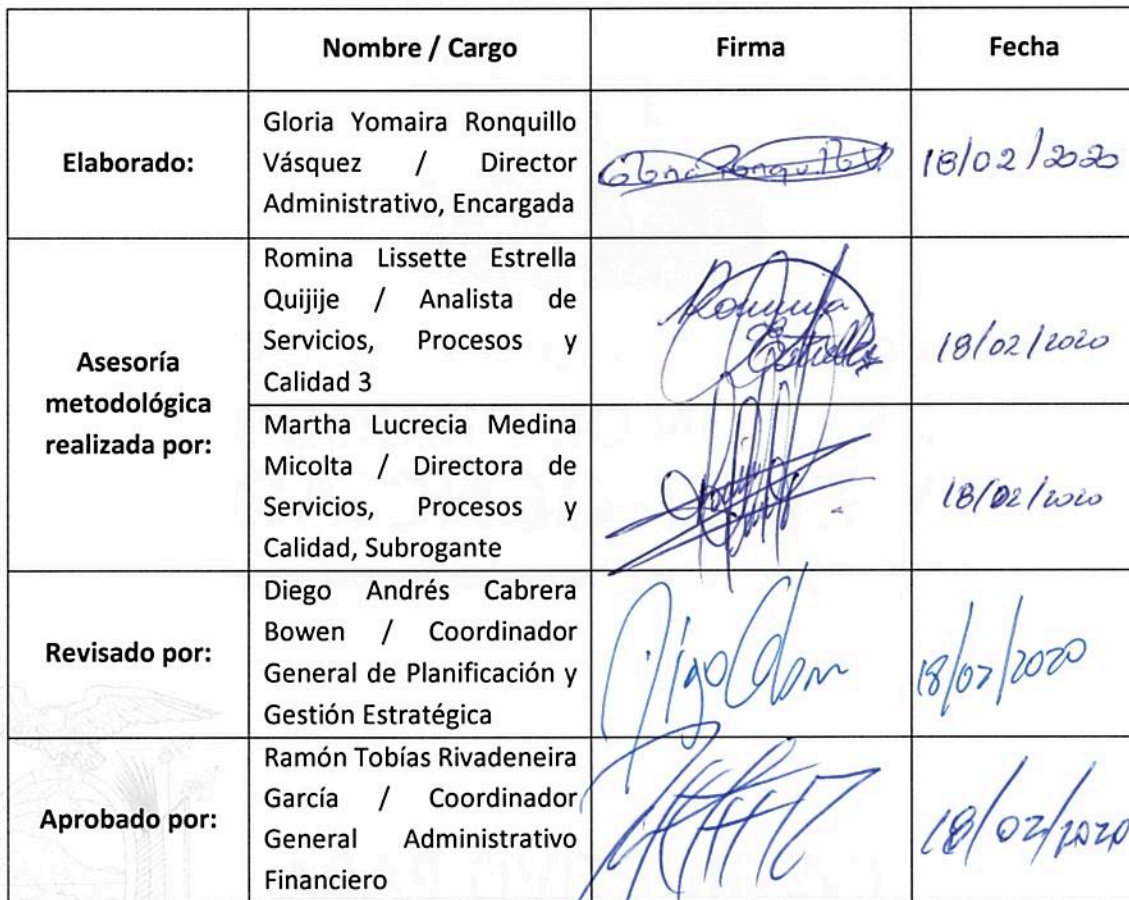 Nombre / Cargo Firma Fecha
Elaborado:
Gloria Yomaira Ronquillo
Vásquez / Director
Administrativo, Encargada
Gloria Ronquillo V.
18/02/2020
Asesoría
metodológica
realizada por:
Romina Lissette Estrella
Quijije / Analista de
Servicios, Procesos y
Calidad 3
Romina
Estrella
18/02/2020
Martha Lucrecia Medina
Micolta / Directora de
Servicios, Procesos y
Calidad, Subrogante
18/02/2020
Revisado por:
Diego Andrés Cabrera
Bowen / Coordinador
General de Planificación y
Gestión Estratégica
18/02/2020
Aprobado por:
Ramón Tobías Rivadeneira
García / Coordinador
General Administrativo
Financiero
18/02/2020